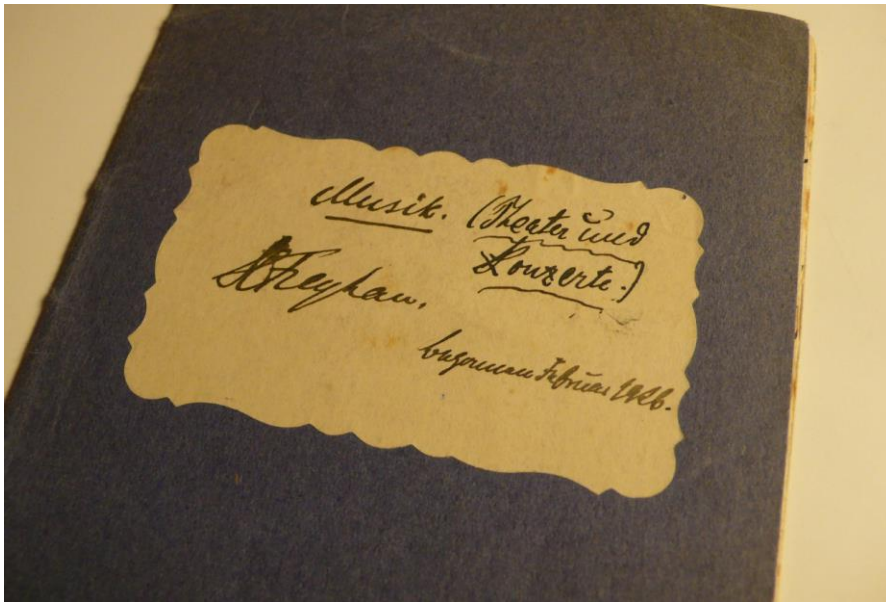 Musik. (Theater und
Konzerte.)
Freyhan.
begonnen Februar 1926.